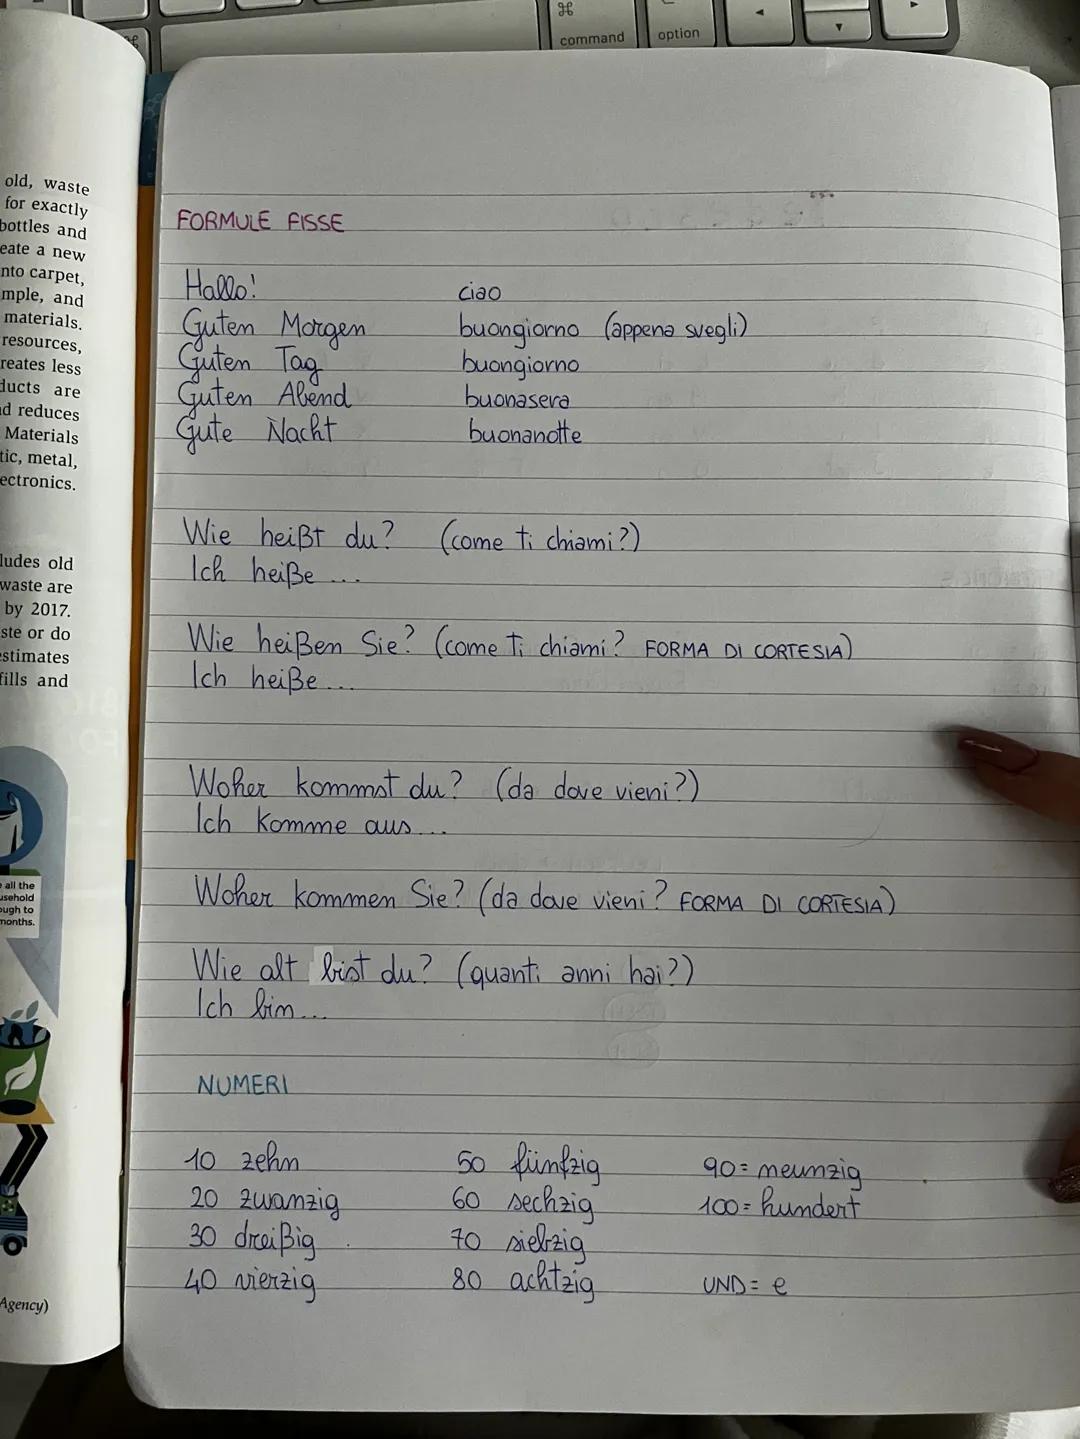 command
option
old, waste
for exactly
bottles and
eate a new
nto carpet,
mple, and
materials.
resources,
reates less
ducts are
d reduces
Materials
tic, metal,
ectronics.
ludes old
waste are
by 2017.
ste or do
estimates
fills and
all the
usehold
ough to
months.
Agency)
FORMULE FISSE
Hallo! ciao
Guten Morgen buongiorno (appena svegli)
Guten Tag buongiorno
Guten Abend buonasera
Gute Nacht buonanotte
Wie heißt du? (come ti chiami?)
Ich heiße ...
Wie heißen Sie? (come ti chiami? FORMA DI CORTESIA)
Ich heiße ...
Woher kommst du? (da dove vieni?)
Ich komme aus ...
Woher kommen Sie? (da dove vieni? FORMA DI CORTESIA)
Wie alt bist du? (quanti anni hai?)
Ich bin ...
NUMERI
10 zehn 50 fünfzig 90= neunzig
20 zwanzig 60 sechzig 100= hundert
30 dreißig 70 siebzig
40 vierzig 80 achtzig UND= e